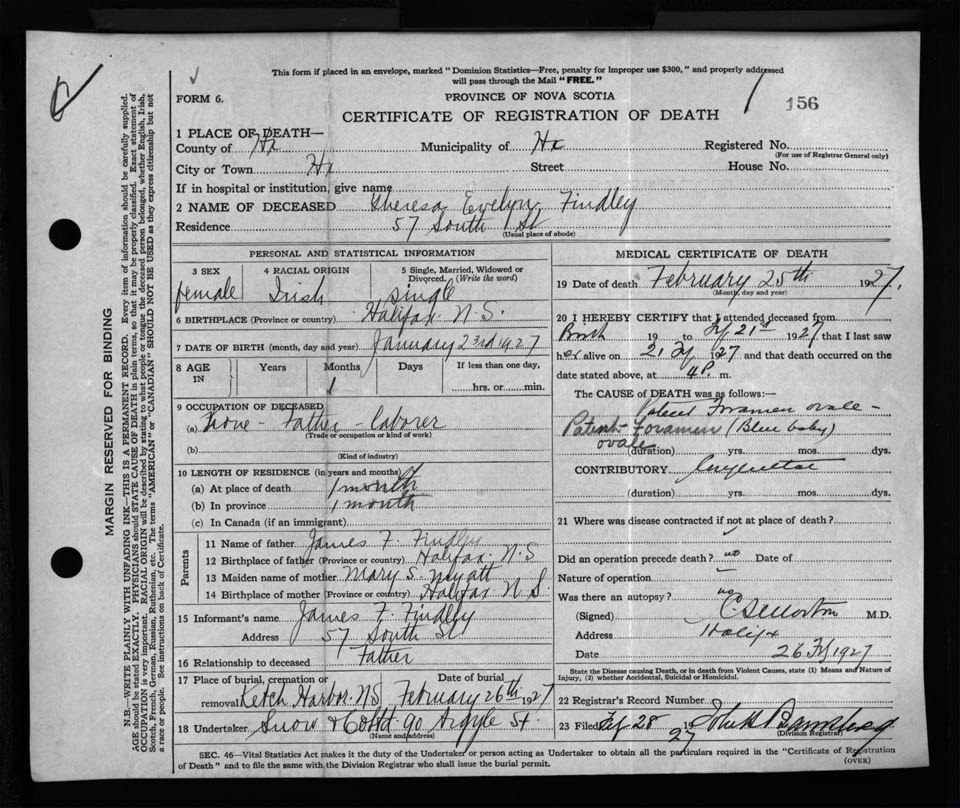 This form if placed in an envelope, marked "Dominion Statistics—Free, penalty for improper use $300," and properly addressed
will pass through the Mail "FREE."
FORM 6.
PROVINCE OF NOVA SCOTIA
156
CERTIFICATE OF REGISTRATION OF DEATH
1 PLACE OF DEATH—
County of Hx Municipality of Hx Registered No.
(For use of Registrar General only)
City or Town Hx Street House No.
If in hospital or institution, give name
2 NAME OF DECEASED Theresa Evelyn Findley
Residence 57 South St
(Usual place of abode)
PERSONAL AND STATISTICAL INFORMATION
3 SEX 4 RACIAL ORIGIN 5 Single, Married, Widowed or
Divorced. (Write the word)
female Irish single
6 BIRTHPLACE (Province or country) Halifax N.S.
7 DATE OF BIRTH (month, day and year) January 23rd 1927
8 AGE
IN
Years Months Days If less than one day,
1 hrs. or min.
9 OCCUPATION OF DECEASED
(a) None - Father - Laborer
(Trade or occupation or kind of work)
(b)
(Kind of industry)
10 LENGTH OF RESIDENCE (in years and months)
(a) At place of death 1 month
(b) In province 1 month
(c) In Canada (if an immigrant)
Parents
11 Name of father James F. Findley
12 Birthplace of father (Province or country) Halifax N.S
13 Maiden name of mother Mary S. Myatt
14 Birthplace of mother (Province or country) Halifax N.S.
15 Informant's name James F. Findley
Address 57 South St
16 Relationship to deceased Father
17 Place of burial, cremation or Date of burial
removal Ketch Harbor N.S. February 26th 1927
18 Undertaker Snow & Co Ltd 90 Argyle St.
(Name and address)
MEDICAL CERTIFICATE OF DEATH
19 Date of death February 25th 1927.
(Month, day and year)
20 I HEREBY CERTIFY that I attended deceased from
Birth 19 to 21st 1927 that I last saw
her alive on 21 1927 and that death occurred on the
date stated above, at 4 P. m.
The CAUSE OF DEATH was as follows:—
Patent Foramen ovale -
Patent Foramen (Blue baby)
ovale
(duration) yrs. mos. dys.
CONTRIBUTORY
(duration) yrs. mos. dys.
21 Where was disease contracted if not at place of death?
Did an operation precede death? no Date of
Nature of operation
Was there an autopsy? no
(Signed) M.D.
Address Halifax
Date 26 1927
State the Disease causing Death, or in death from Violent Causes, state (1) Means and Nature of
Injury, (2) whether Accidental, Suicidal or Homicidal.
22 Registrar's Record Number
23 Filed 28 1927
(Division Registrar)
SEC. 46—Vital Statistics Act makes it the duty of the Undertaker or person acting as Undertaker to obtain all the particulars required in the "Certificate of Registration
of Death" and to file the same with the Division Registrar who shall issue the burial permit.
(OVER)
MARGIN RESERVED FOR BINDING
N.B.—WRITE PLAINLY WITH UNFADING INK—THIS IS A PERMANENT RECORD. Every item of information should be carefully supplied.
AGE should be stated EXACTLY. PHYSICIANS should STATE CAUSE OF DEATH in plain terms, so that it may be properly classified. Exact statement of
OCCUPATION is very important. RACIAL ORIGIN will be described by stating to what people or tongue the deceased person belonged, whether English, Irish,
Scotch, French, German, Russian, Ruthenian, etc. The terms "AMERICAN" or "CANADIAN" SHOULD NOT BE USED as they express citizenship but not
a race or people. See instructions on back of Certificate.